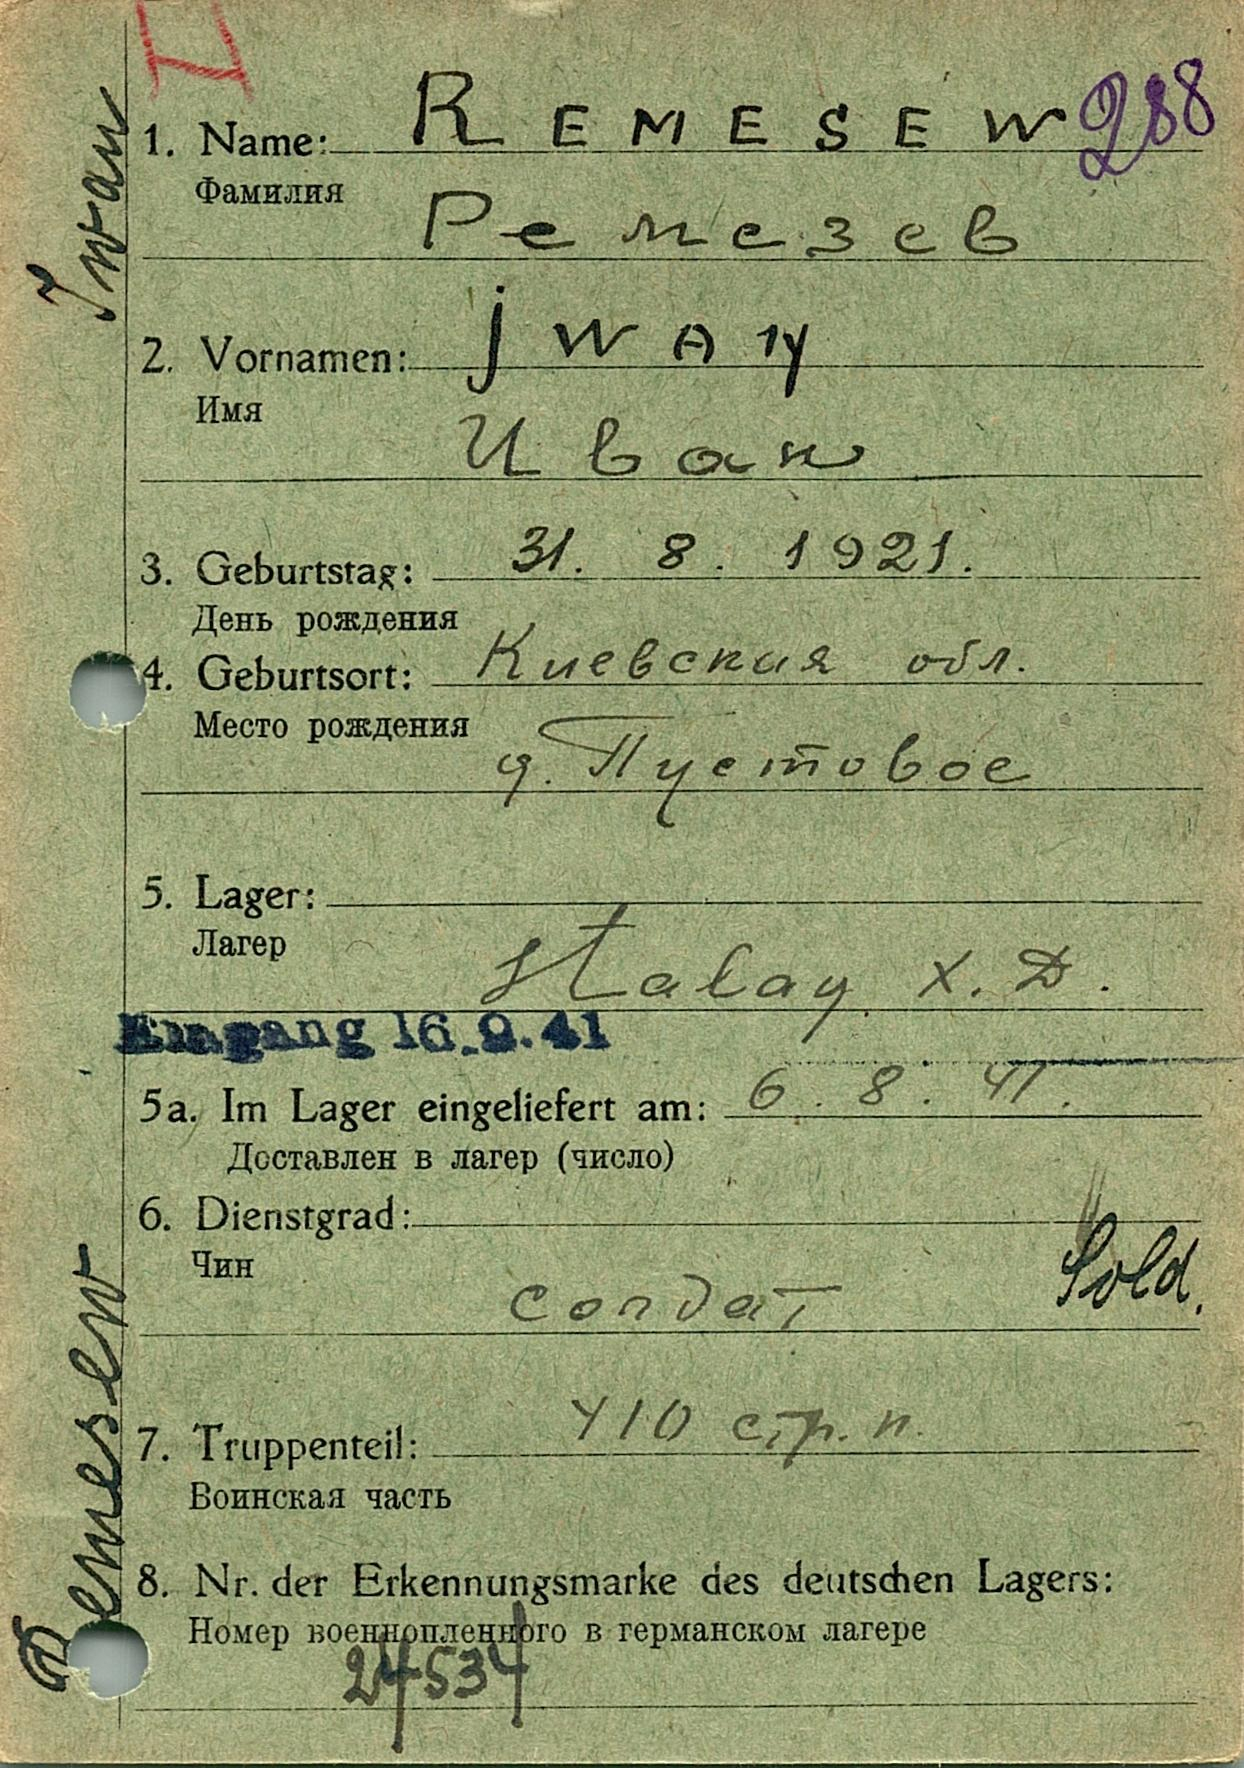 I
1. Name: REMESEW 288
Фамилия
Ремезев
2. Vornamen: jWAN
Имя
Иван
3. Geburtstag: 31. 8. 1921.
День рождения
4. Geburtsort: Киевская обл.
Место рождения
д. Пустовое
5. Lager:
Лагер
Stalag X. D.
Eingang 16.9.41
5a. Im Lager eingeliefert am: 6. 8. 41.
Доставлен в лагер (число)
6. Dienstgrad:
Чин
солдат Sold.
7. Truppenteil: 410 стр. п.
Воинская часть
8. Nr. der Erkennungsmarke des deutschen Lagers:
Номер военнопленного в германском лагере
24534
Remesew Iwan